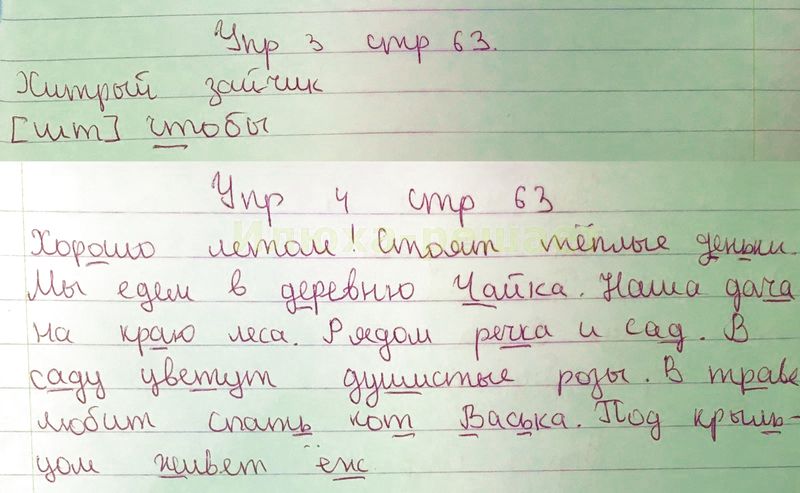 Упр 3 стр 63.
Хитрый зайчик
[шт] чтобы
Упр 4 стр 63
Хорошо летом! Стоят тёплые деньки.
Мы едем в деревню Чайка. Наша дача
на краю леса. Рядом речка и сад. В
саду цветут душистые розы. В траве
любит спать кот Васька. Под крыль-
цом живет ёж